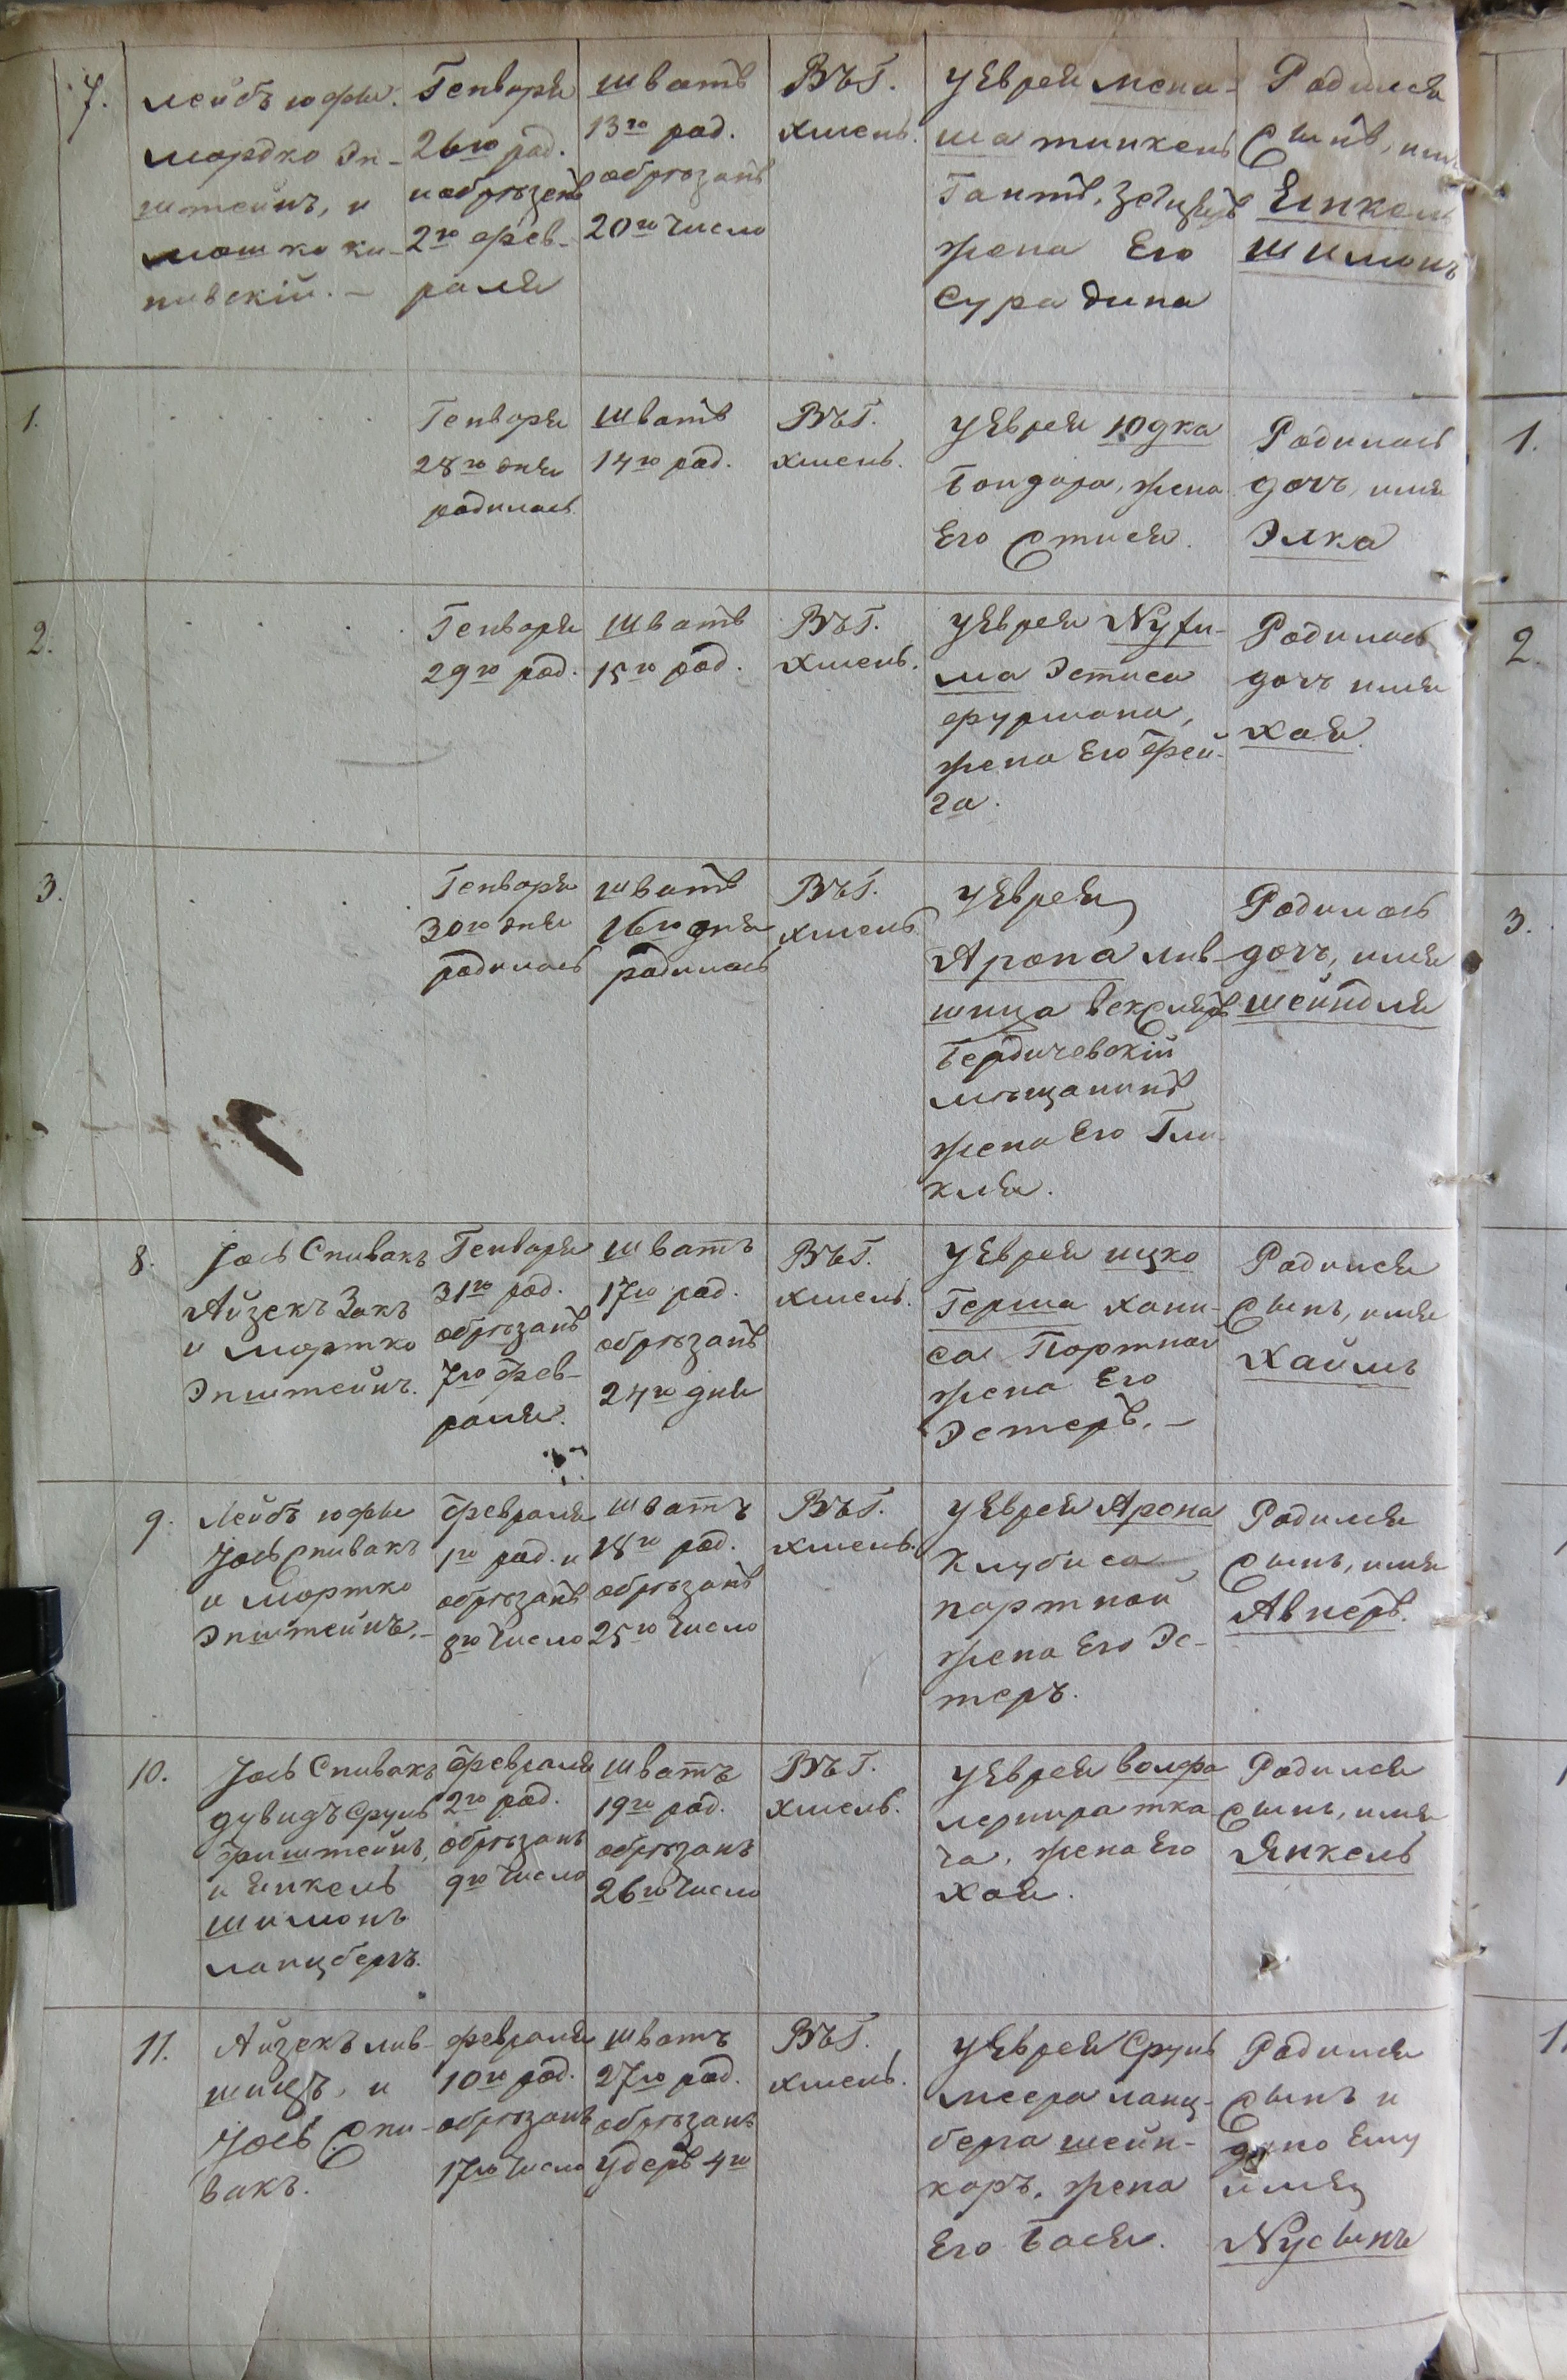 7.
Лейбъ Юфы.
Мордко Эп-
штейнъ, и
Мошко ки-
пивскій. —
Генваря
26го род.
и обрѣзанъ
2го фев-
раля
Шватъ
13го род.
обрѣзанъ
20го число
Въ Г.
Хмель.
У Еврея Мена-
ша
жена Его
Сура Дина
Родился
Сынъ, имя
Янкель
Шимонъ
1.
Генваря
28го дня
родилась
Шватъ
14го род.
Въ Г.
Хмель.
У Еврея Юдка
Бондара, жена
Его Стися.
Родилась
дочь, имя
Элка
1.
2.
Генваря
29го род.
Шватъ
15го род.
Въ Г.
Хмель.
У Еврея Нуфи-
ма Эстиса
фурмана,
жена Его Фей-
га.
Родилась
дочь имя
Хая.
2
3.
Генваря
30го дня
родилась
Шватъ
16го дня
родилась
Въ Г.
Хмель.
У Еврея
Арона Лив-
шица
Бердичевскій
мѣщанинъ
жена Его Гли-
кля.
Родилась
дочь, имя
Шейндля
3.
8.
Іось Спивакъ
Айзекъ Закъ
и Мортко
Эпштейнъ.
Генваря
31го род.
обрѣзанъ
7го Фев-
раля.
Шватъ
17го род.
обрѣзанъ
24го дня
Въ Г.
Хмель.
У Еврея Ицко
Герша Хани-
са Портной
жена Его
Эстеръ. —
Родился
Сынъ, имя
Хаимъ
9.
Лейбъ Юфы
Іось Спивакъ
и Мортко
Эпштейнъ. —
Февраля
1го род. и
обрѣзанъ
8го число
Шватъ
18го род.
обрѣзанъ
25го число
Въ Г.
Хмель.
У Еврея Арона
Клубиса
портной
жена Его Эс-
теръ.
Родился
Сынъ, имя
Авнеръ.
10.
Іось Спивакъ
Дувидъ Сруль
Фиштейнъ,
и Янкель
Шимонъ
Ланцбергъ.
Февраля
2го род.
обрѣзанъ
9го число
Шватъ
19го род.
обрѣзанъ
26го число
Въ Г.
Хмель.
У Еврея Волфа
Лернира тка-
ча, жена Его
Хая.
Родился
Сынъ, имя
Янкель
11.
Айзекъ Лив-
шицъ, и
Іось Спи-
вакъ.
Февраля
10го род.
обрѣзанъ
17го число
Шватъ
27го род.
обрѣзанъ
Удеръ 4го
Въ Г.
Хмель.
У Еврея Сруль
Меера Ланц-
берга шейн-
каръ, жена
Его Бася.
Родился
Сынъ и
дано Ему
имя
Нусынъ